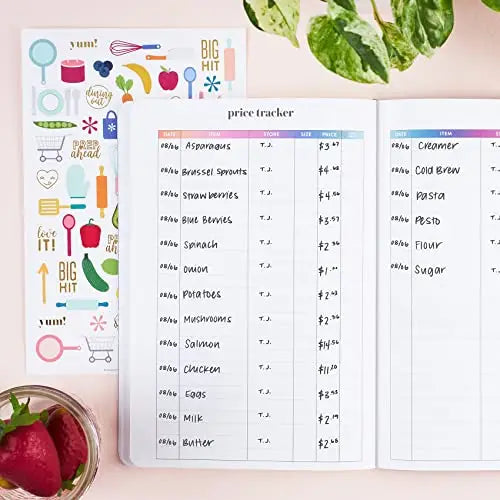 yum!
BIG
HIT
dining
out
PREP
ahead
love
IT!
PREP
BIG
HIT
yum!
price tracker
DATE ITEM STORE SIZE PRICE
08/06 Asparagus T.J. $3.67
08/06 Brussel Sprouts T.J. $4.68
08/06 Strawberries T.J. $4.56
08/06 Blue Berries T.J. $3.57
08/06 Spinach T.J. $2.36
08/06 Onion T.J.
08/06 Potatoes T.J. $2.63
08/06 Mushrooms T.J. $2.36
08/06 Salmon T.J. $14.56
08/06 Chicken T.J. $11.20
08/06 Eggs T.J. $3.53
08/06 Milk T.J. $2.19
08/06 Butter T.J. $2.68
DATE ITEM
08/06 Creamer T.
08/06 Cold Brew T.
08/06 Pasta T.
08/06 Pesto T.
08/06 Flour T.
08/06 Sugar T.